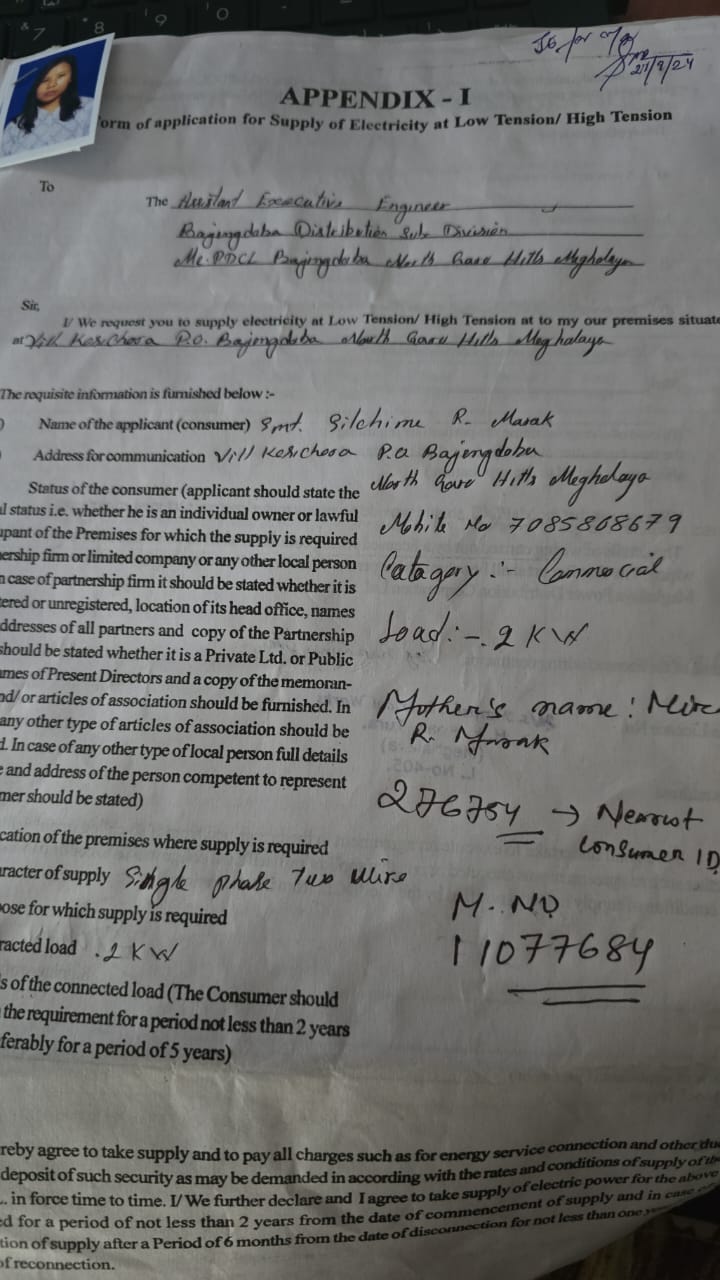 21/9/24
APPENDIX - I
orm of application for Supply of Electricity at Low Tension/ High Tension
To
The Assistant Executive Engineer
Bajengdoba Distribution Sub Division
Me.PDCL Bajengdoba North Garo Hills Meghalaya
Sir,
I/ We request you to supply electricity at Low Tension/ High Tension at to my our premises situate
at Vill Kosichora P.O. Bajengdoba North Garo Hills Meghalaya
The requisite information is furnished below :-
Name of the applicant (consumer) Smt. Silchime R. Marak
Address for communication Vill Kosichora P.O Bajengdoba
North Garo Hills Meghalaya
Status of the consumer (applicant should state the
al status i.e. whether he is an individual owner or lawful
Mobile No 7085868679
upant of the Premises for which the supply is required
ership firm or limited company or any other local person
Catagory :- Commercial
n case of partnership firm it should be stated whether it is
tered or unregistered, location of its head office, names
ddresses of all partners and copy of the Partnership
Load :- .2 KW
should be stated whether it is a Private Ltd. or Public
ames of Present Directors and a copy of the memoran-
nd/ or articles of association should be furnished. In
Mother's name : Mirc
any other type of articles of association should be
R. Marak
d. In case of any other type of local person full details
e and address of the person competent to represent
mer should be stated)
276754 → Nearest
Consumer ID
cation of the premises where supply is required
aracter of supply Single phase Two Wire
pose for which supply is required
M. NO
racted load .2 KW
11077684
s of the connected load (The Consumer should
the requirement for a period not less than 2 years
ferably for a period of 5 years)
reby agree to take supply and to pay all charges such as for energy service connection and other du
deposit of such security as may be demanded in according with the rates and conditions of supply of th
.. in force time to time. I/ We further declare and I agree to take supply of electric power for the above
ed for a period of not less than 2 years from the date of commencement of supply and in case
tion of supply after a Period of 6 months from the date of disconnection for not less than one
of reconnection.